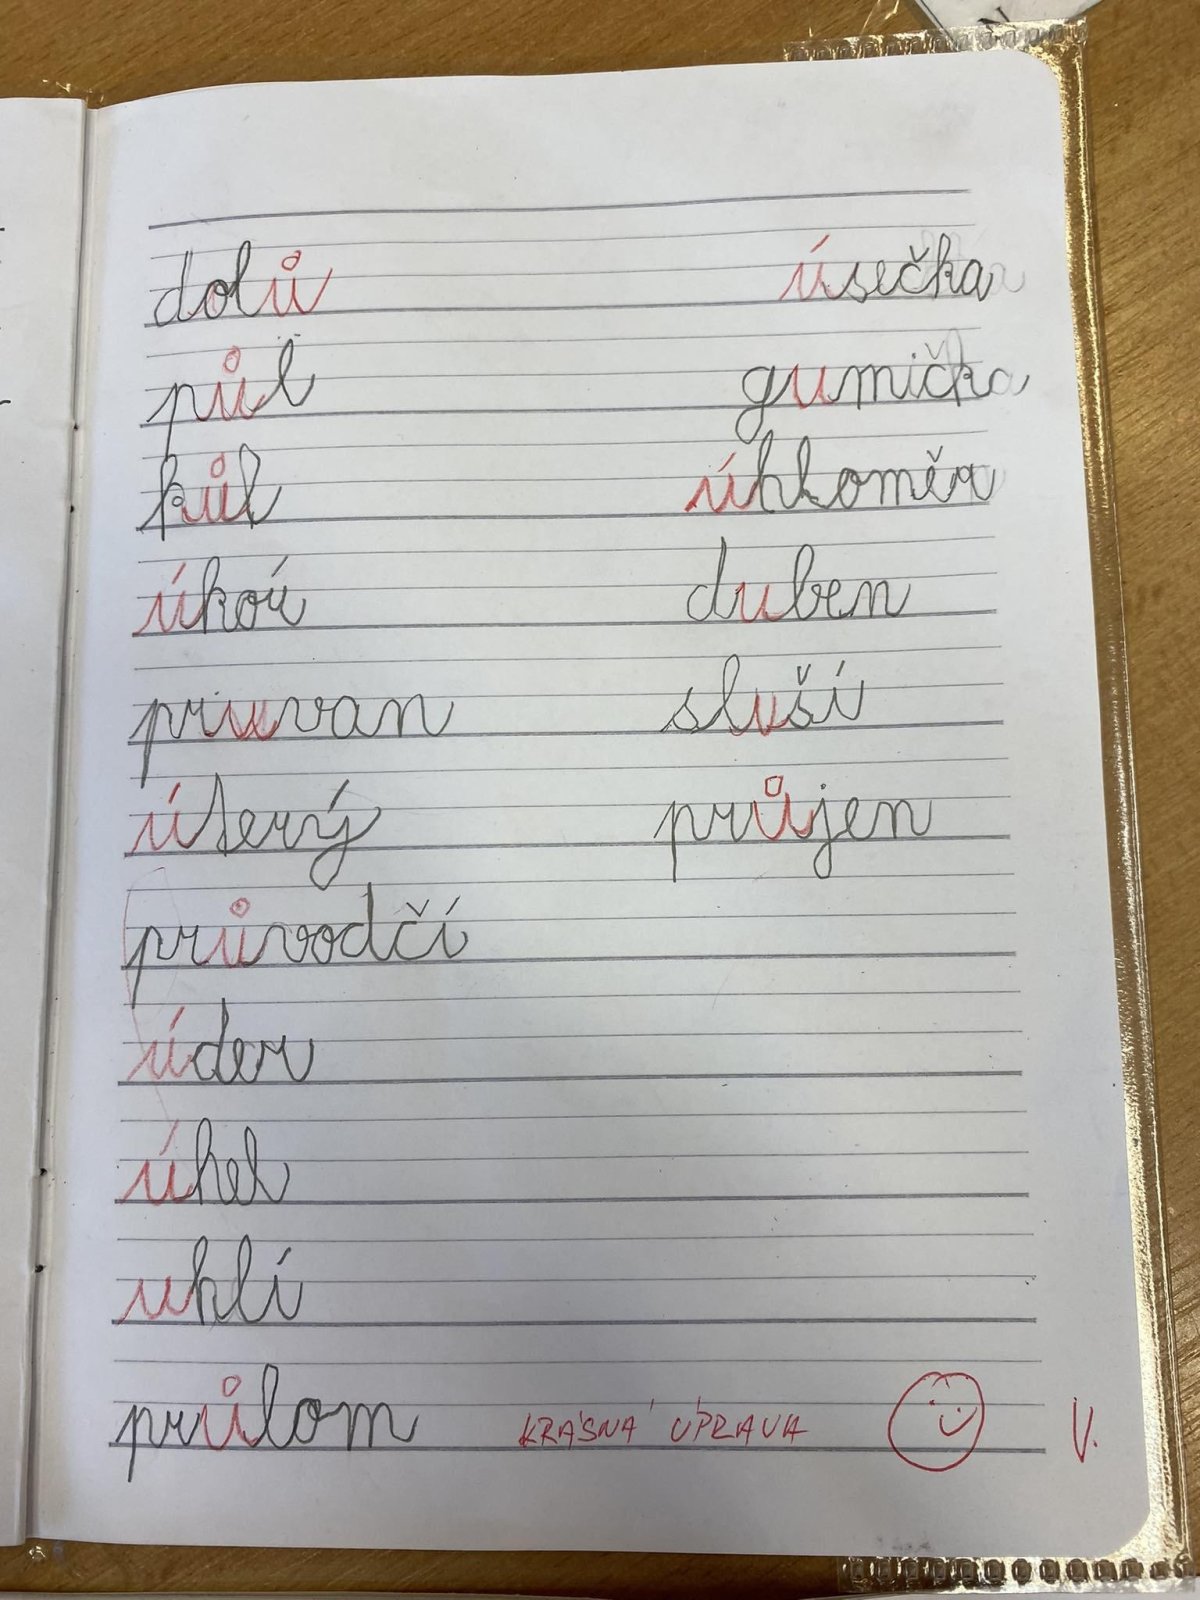 dolů
půl
kůl
úkoú
pruvan
úterý
průvodčí
úder
úhel
uhlí
průlom
úsečka
gumička
úhloměr
duben
sluší
průjen
KRÁSNÁ ÚPRAVA
V.
N